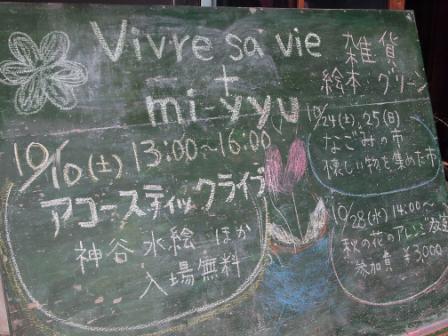 Vivre sa vie
+
mi-yyu
雑貨
絵本・グリーン
10/10(土) 13:00〜16:00
アコースティックライブ
神谷 水絵 ほか
入場無料
10/24(土),25(日)
なごみの市
懐しい物を集めた市
10/28(水) 14:00〜
秋の花のアレンジ教室
参加費 ¥3,000